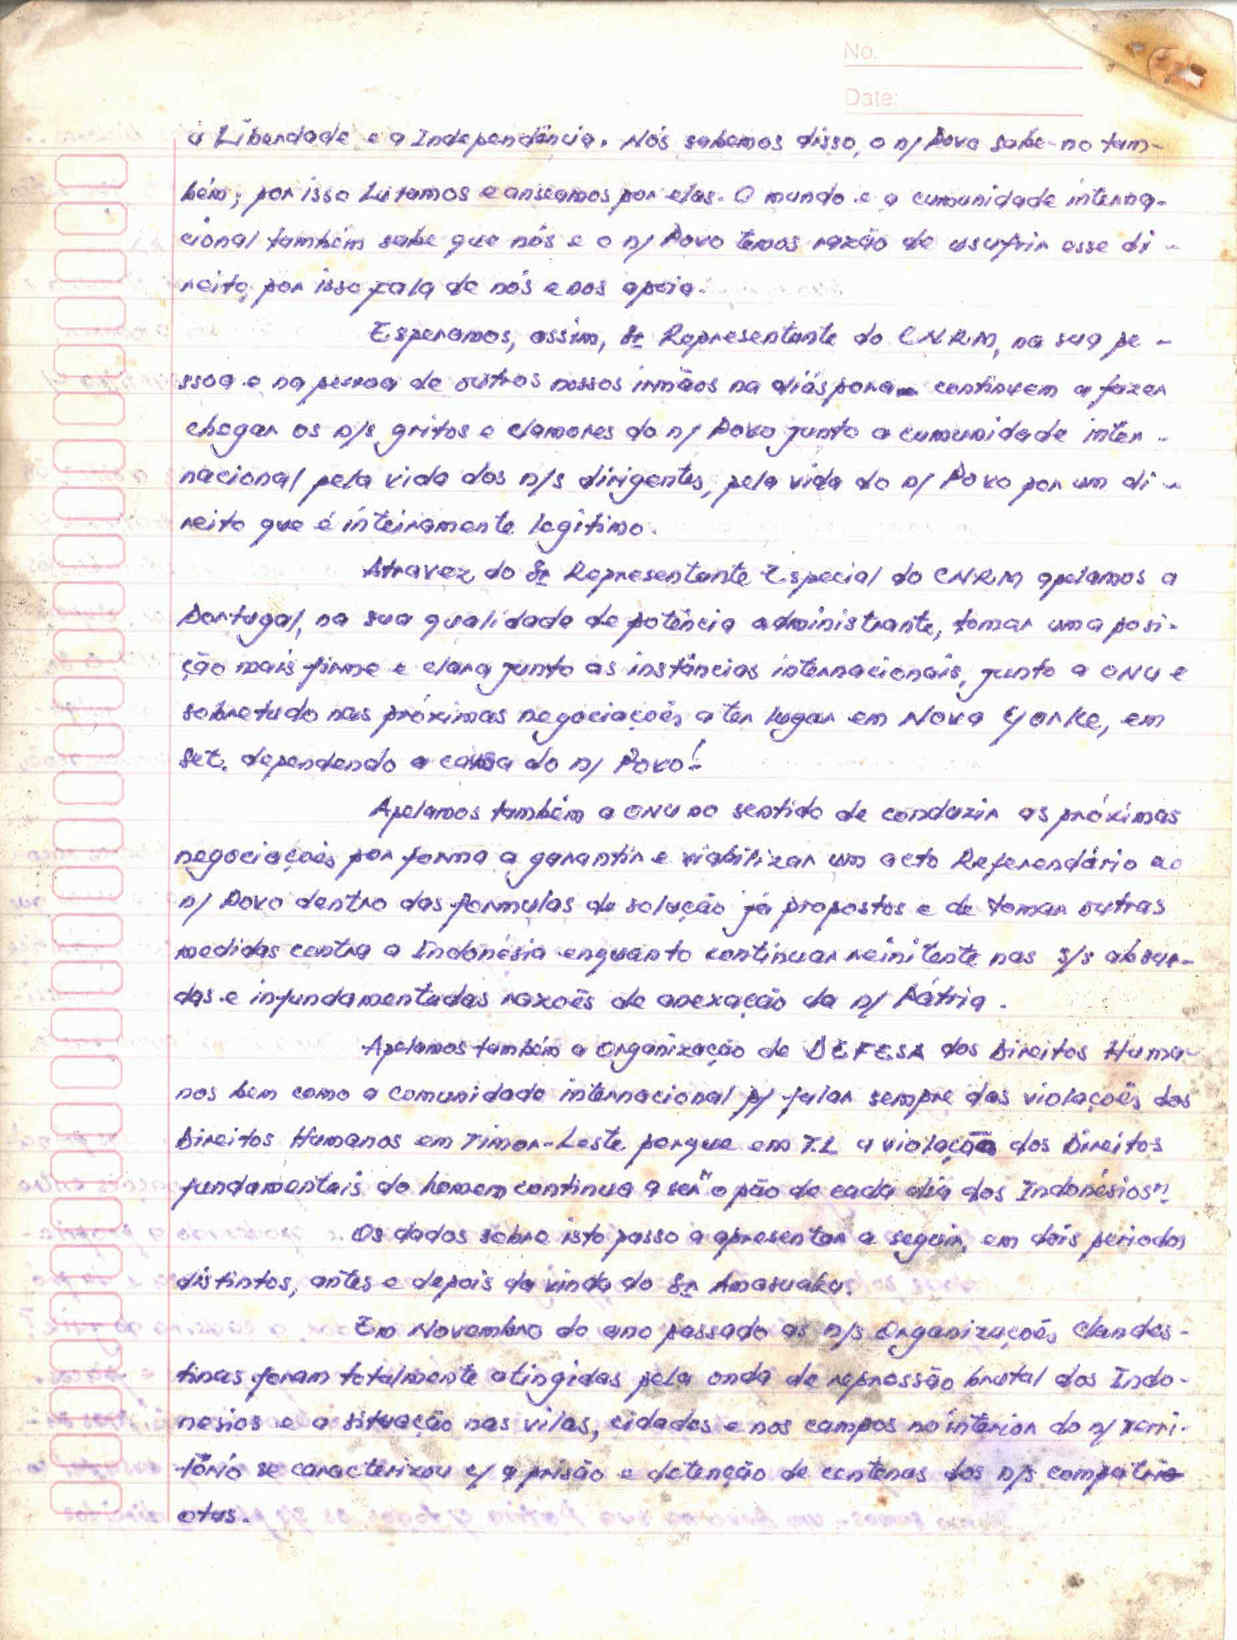 No.
Date:
à Liberdade e a Independência. Nós sabemos disso, o n/ Povo sabe-no tam-
bém; por isso Lutamos e anseamos por elas. O mundo e a cumunidade interna-
cional também sabe que nós e o n/ Povo temos razão de usufrir esse di-
reito, por isso fala de nós e nos apoia.
Esperamos, assim, Sr. Representante do CNRM, na sua pe-
ssoa e na pessoa de outros nossos irmãos na diáspora continuem a fazer
chegar os n/s gritos e clamores do n/ Povo junto a cumunidade inter-
nacional pela vida dos n/s dirigentes, pela vida do n/ Povo por um di-
reito que é inteiramente legítimo.
Atravez do Sr. Representante Especial do CNRM apelamos a
Portugal, na sua qualidade de potência administrante, tomar uma posi-
ção mais firme e clara junto as instâncias internacionais, junto a ONU e
sobretudo nas próximas negociaçoês a ter lugar em Nova Yorke, em
Set. dependendo a causa do n/ Povo!
Apelamos também a ONU no sentido de conduzir as próximas
negociaçoês por forma a garantir e viabilizar um acto Referendário ao
n/ Povo dentro das formulas de solução já propostos e de tomar outras
medidas contra a Indonésia enquanto continuar reinitente nas s/s absur-
das e infundamentadas razoês de anexação da n/ Pátria.
Apelamos também a Organização de DEFESA dos Direitos Huma-
nos bem como a comunidade internacional p/ falar sempre das violaçoês dos
Direitos Humanos em Timor-Leste porque em T.L a violação dos Direitos
fundamentais do homem continua a ser "o pão de cada dia dos Indonésios".
Os dados sobre isto passo a apresentar a seguir, em dois periodos
distintos, antes e depois da vinda do Sr. Amasuaku.
Em Novembro do ano passado as n/s Organizaçoês Clandes-
tinas foram totalmente atingidas pela onda de repressão brutal dos Indo-
nesios e a situação nas vilas, cidades e nos campos no interior do n/ Terri-
tório se caracterizou c/ a prisão e detenção de centenas dos n/s compatrio
otas.